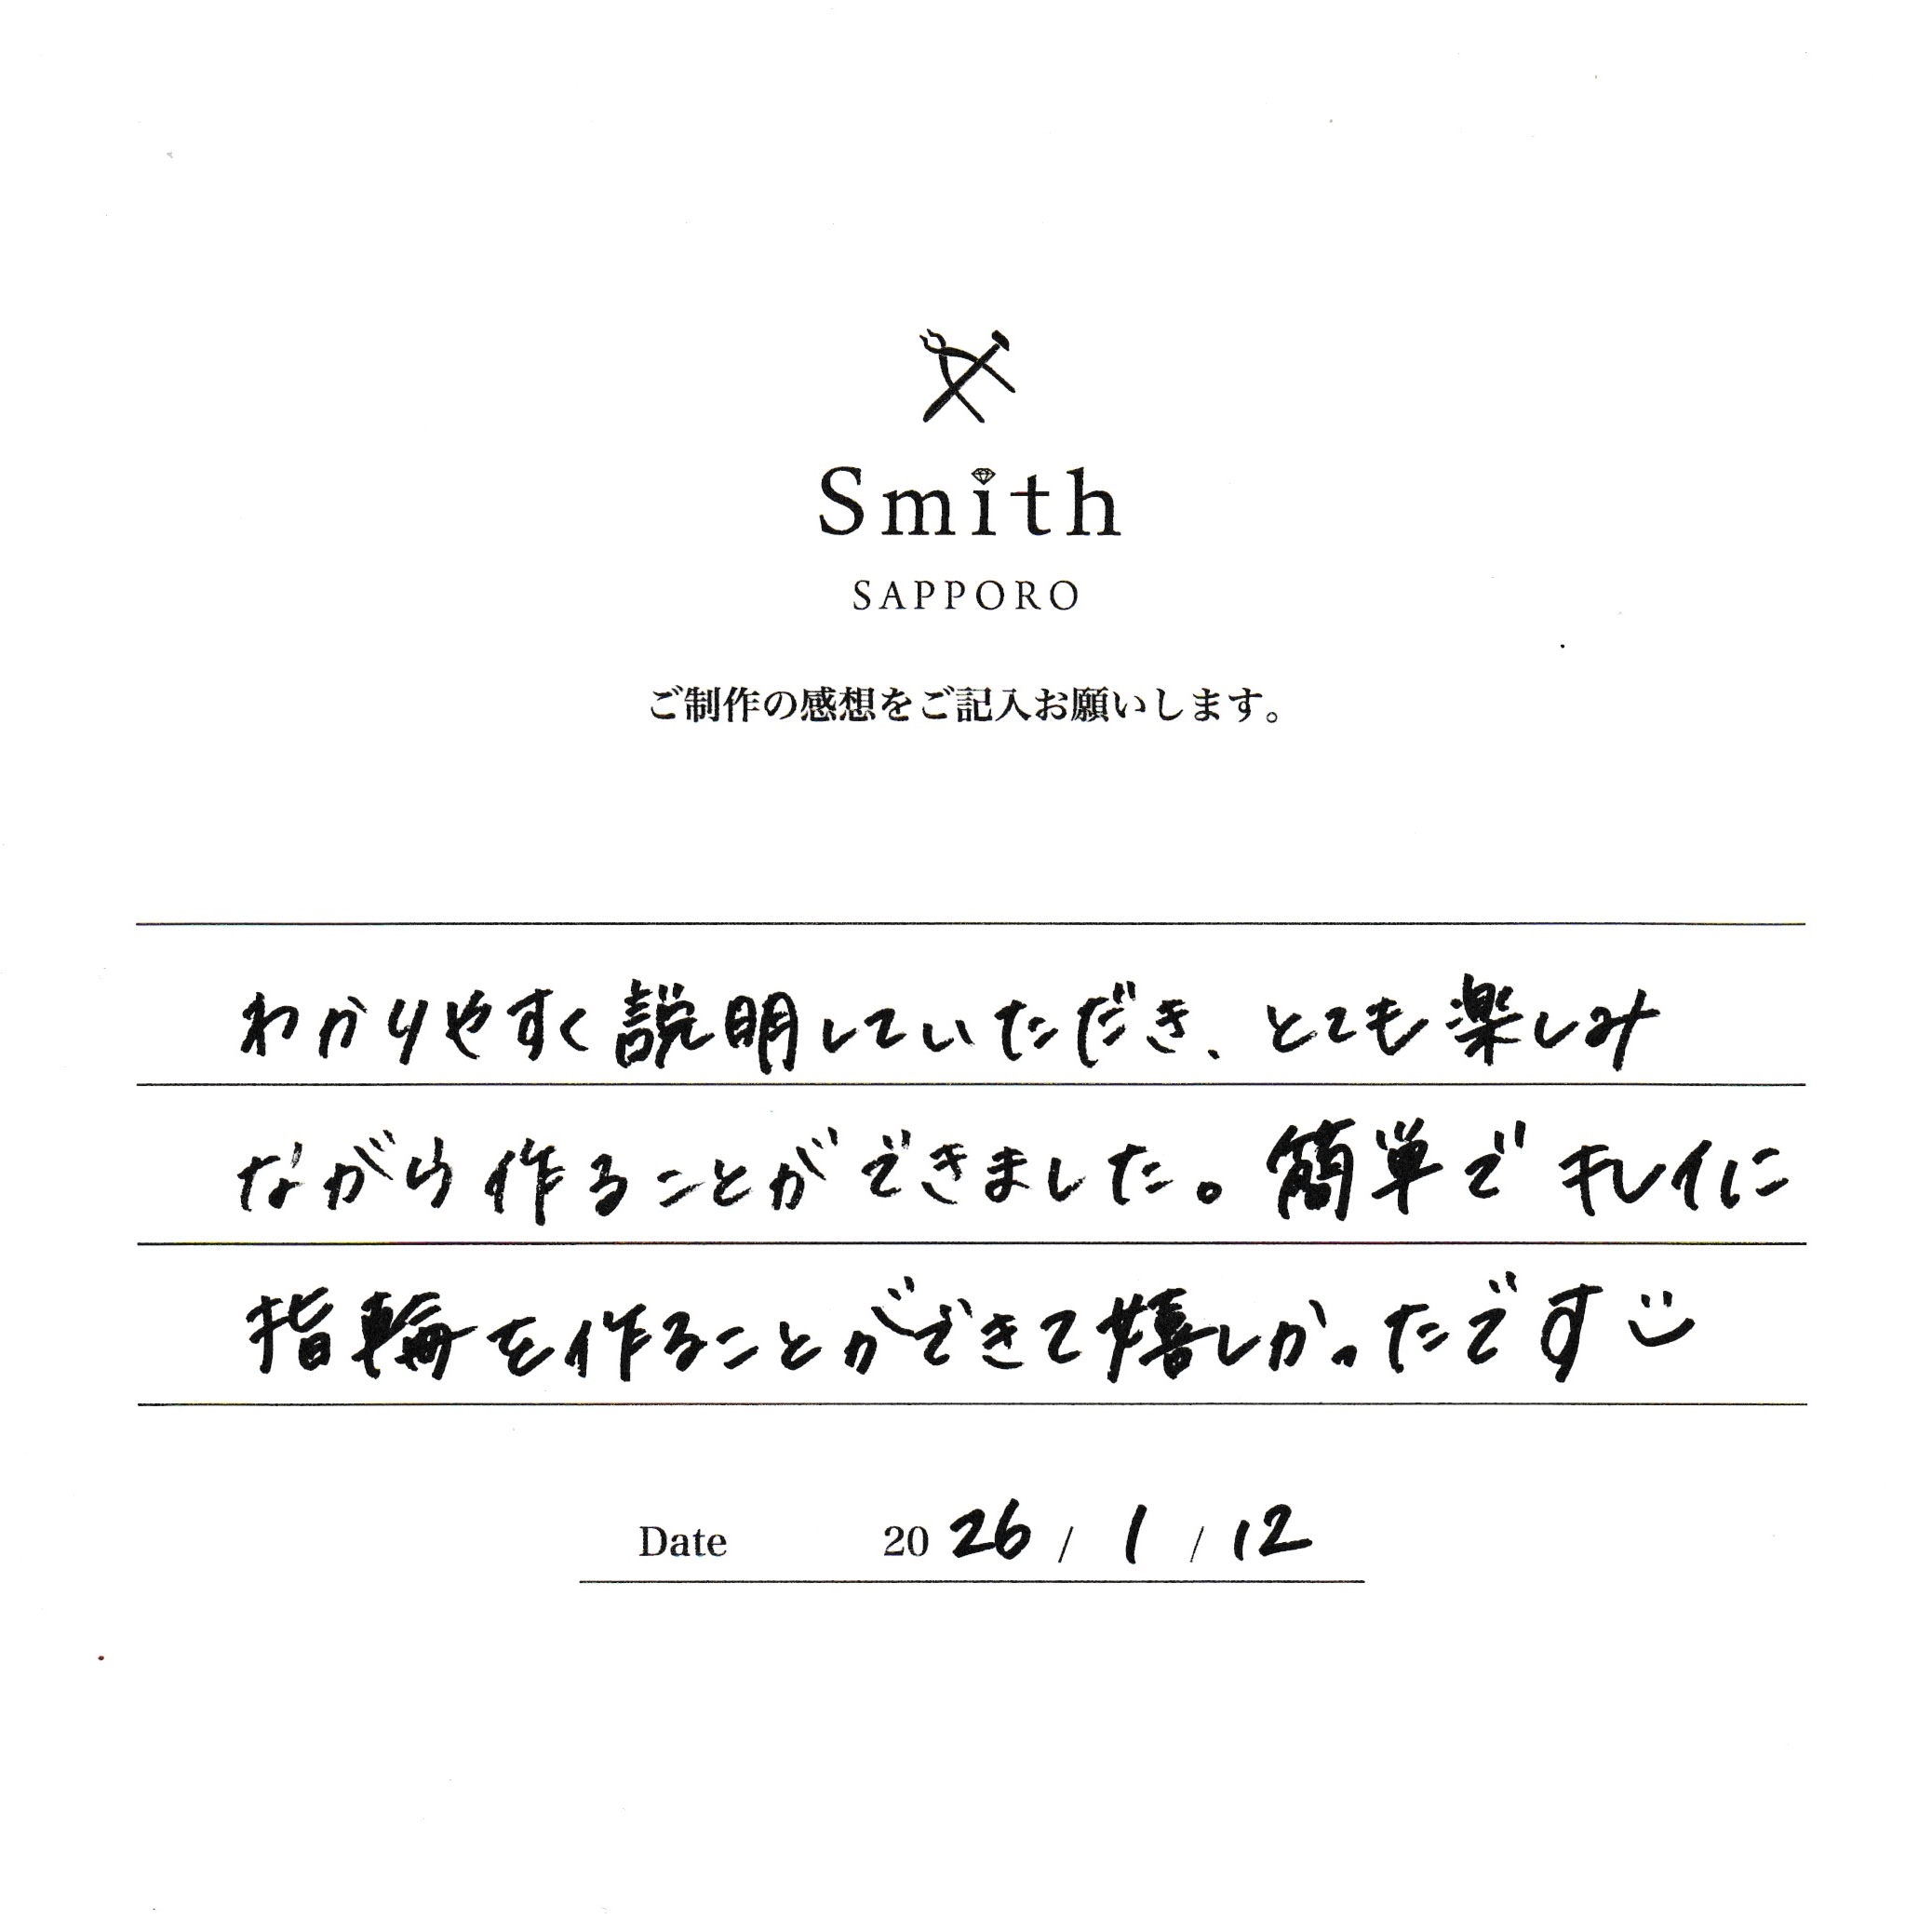 Smith
SAPPORO
ご制作の感想をご記入お願いします。
わかりやすく説明していただき、とても楽しみ
ながら作ることができました。簡単でキレイに
指輪を作ることができて嬉しかったです
Date 2026 / 1 / 12